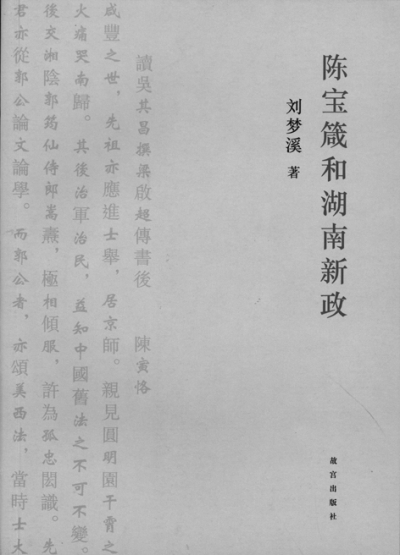 陈宝箴和湖南新政
刘梦溪 著
故宫出版社
讀吳其昌撰梁啟超傳書後 陳寅恪
咸豐之世，先祖亦應進士舉，居京師。親見圓明園干霄之
火，痛哭南歸。其後治軍治民，益知中國舊法之不可不變。
後交湘陰郭筠仙侍郎嵩燾，極相傾服，許為孤忠閎識。先
君亦從郭公論文論學。而郭公者，亦頌美西法，當時士大